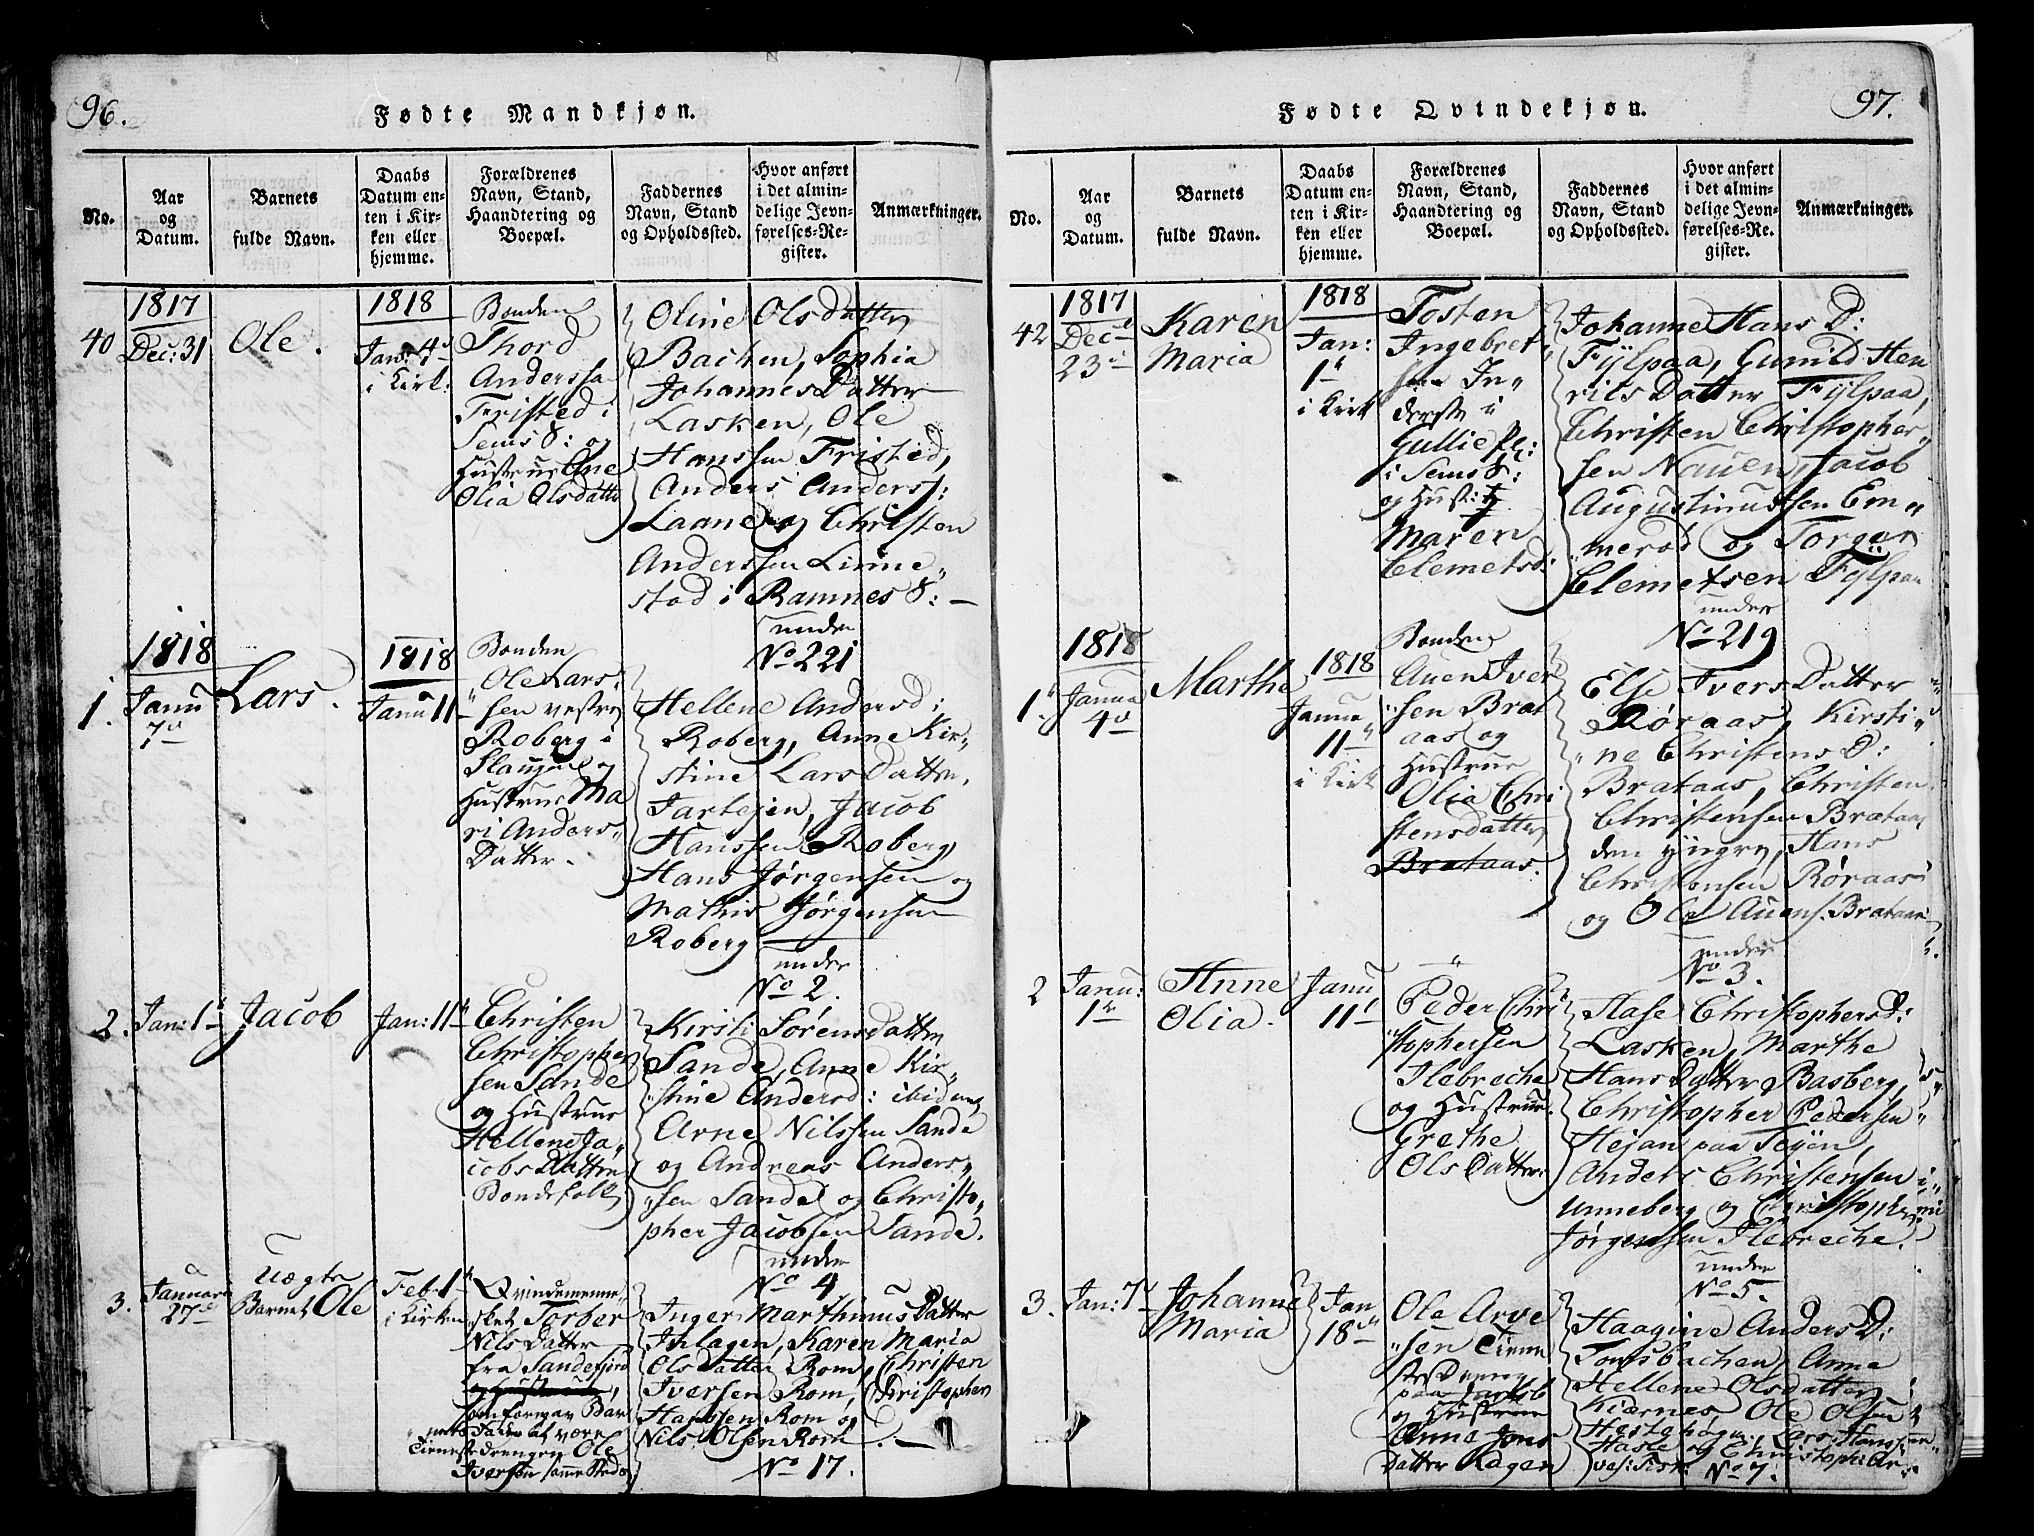 96.
Fødte Mandkjøn.
No.
Aar
og
Datum.
Barnets
fulde Navn.
Daabs
Datum en-
ten i Kir-
ken eller
hjemme.
Forældrenes
Navn, Stand,
Haandtering og
Boepæl.
Faddernes
Navn, Stand
og Opholdssted.
Hvor anført
i det almin-
delige Jevn-
førelses-Re-
gister.
Anmærkninger.
40
1817
Dec: 31
Ole.
1818
Jan: 4
i Kirk:
Bonden
Thord
Anderssen
Fristed i
Sems S: og
Hustrue Ane
Olia Olsdatter
Oline Olsdatter
Bachen, Sophia
Johannes Datter
Lasken, Ole
Hanssen Fristed,
Anders Anderss:
Laane og Christen
Anderssen Linne
stad i Ramnes S:
under
No 221
1.
1818
Janu
7
Lars.
1818
Janu 11
Bonden
Ole Lars
sen vestre
Roberg i
Slaugen og
Hustrue Ma
ri Anders
Datter.
Hellene Andersd:
Roberg, Anne Kir
stine Lars Datter
Jartejen, Jacob
Hanssen Roberg
Hans Jørgensen og
Mathis Jørgensen
Roberg
under
No 2.
2.
Jan: 1
Jacob
Jan: 11
Christen
Christopher
sen Sande
og Hustrue
Hellene Ja
cobs Datter
Bondefolk
Kirsti Sørensdatter
Sande, Anne Kir
stine Andersd: ibidem,
Arne Nilssen Sande
og Andreas Anders
sen Sande og Christo
pher Jacobsen Sande.
under
No 4
3.
Januari
27
Uægte
Barnet Ole
Feb: 1
i Kirken
Qvindemenne
sket Torber
Nils Datter
fra Sandefjord
og Hustrue,
som forgav Bar
nets Fader at være
Tieneste drengen Ole
Iversen samme Sted
Inger Marthinus Datter
Ihlagen, Karen Maria
Ols Datter Rom, Christen
Iversen Rom, Christopher
Hanssen Rom og
Nils Olsen Rom.
No 17.
97.
Fødte Qvindekjøn.
No.
Aar
og
Datum.
Barnets
fulde Navn.
Daabs
Datum en-
ten i Kir-
ken eller
hjemme.
Forældrenes
Navn, Stand,
Haandtering og
Boepæl.
Faddernes
Navn, Stand
og Opholdssted.
Hvor anført
i det almin-
delige Jevn-
førelses-Re-
gister.
Anmærkninger.
42
1817
Dec
23
Karen
Maria
1818
Jan:
1
i Kirk
Tosten
Ingebret
sen In
derste i
Gullie
i Sems S:
og Hust:
Maren
Clemetsd:
Johanne Hans D:
Fylpaa, Gunild Hen
rils Datter Fylpaa,
Christen Christopher
sen Nauen, Jacob
Augustinussen Em
merød og Torger
Clemetsen Fylpaa
under
No 219
1
1818
Janua
4
Marthe
1818
Janua
11
i Kirk
Bonden
Auen Iver
sen Brat
aas og
Hustrue
Olia Chri
stensdatter
Brataas.
Else Ivers Datter
Røraas, Kirsti
ne Christens D:
Brataas, Christen
Christensen Brataas
den yngre, Hans
Christensen Røraas
og Ole Auens: Brataas
under
No 3.
2
Janu:
1
Anne
Olia.
Janu
11
Peder Chri
stophersen
Ilebreche
og Hustrue
Grethe
Ols Datter:
Aase Christophersd:
Lasken, Marthe
Hans Datter Basberg,
Christopher Pedersen
Hejan paa Teyen,
Anders Christensen
Unneberg og Christopher
Jørgenssen Ilebreche.
under
No 5.
3.
Jan: 7
Johanne
Maria
Jan
18
Ole Arve
sen Tiene
ste Dreng
paa Jarlsb
og Hustrue
Anne Jons
Datter Ragen
Haagine Anders D:
Tomsbachen, Anne
Hellene Olsdatter
Kiærnes Ole Olsen
Hestehogen, Lars Hanssen
Hasle og Christoph: Ar
ves:
No 7.